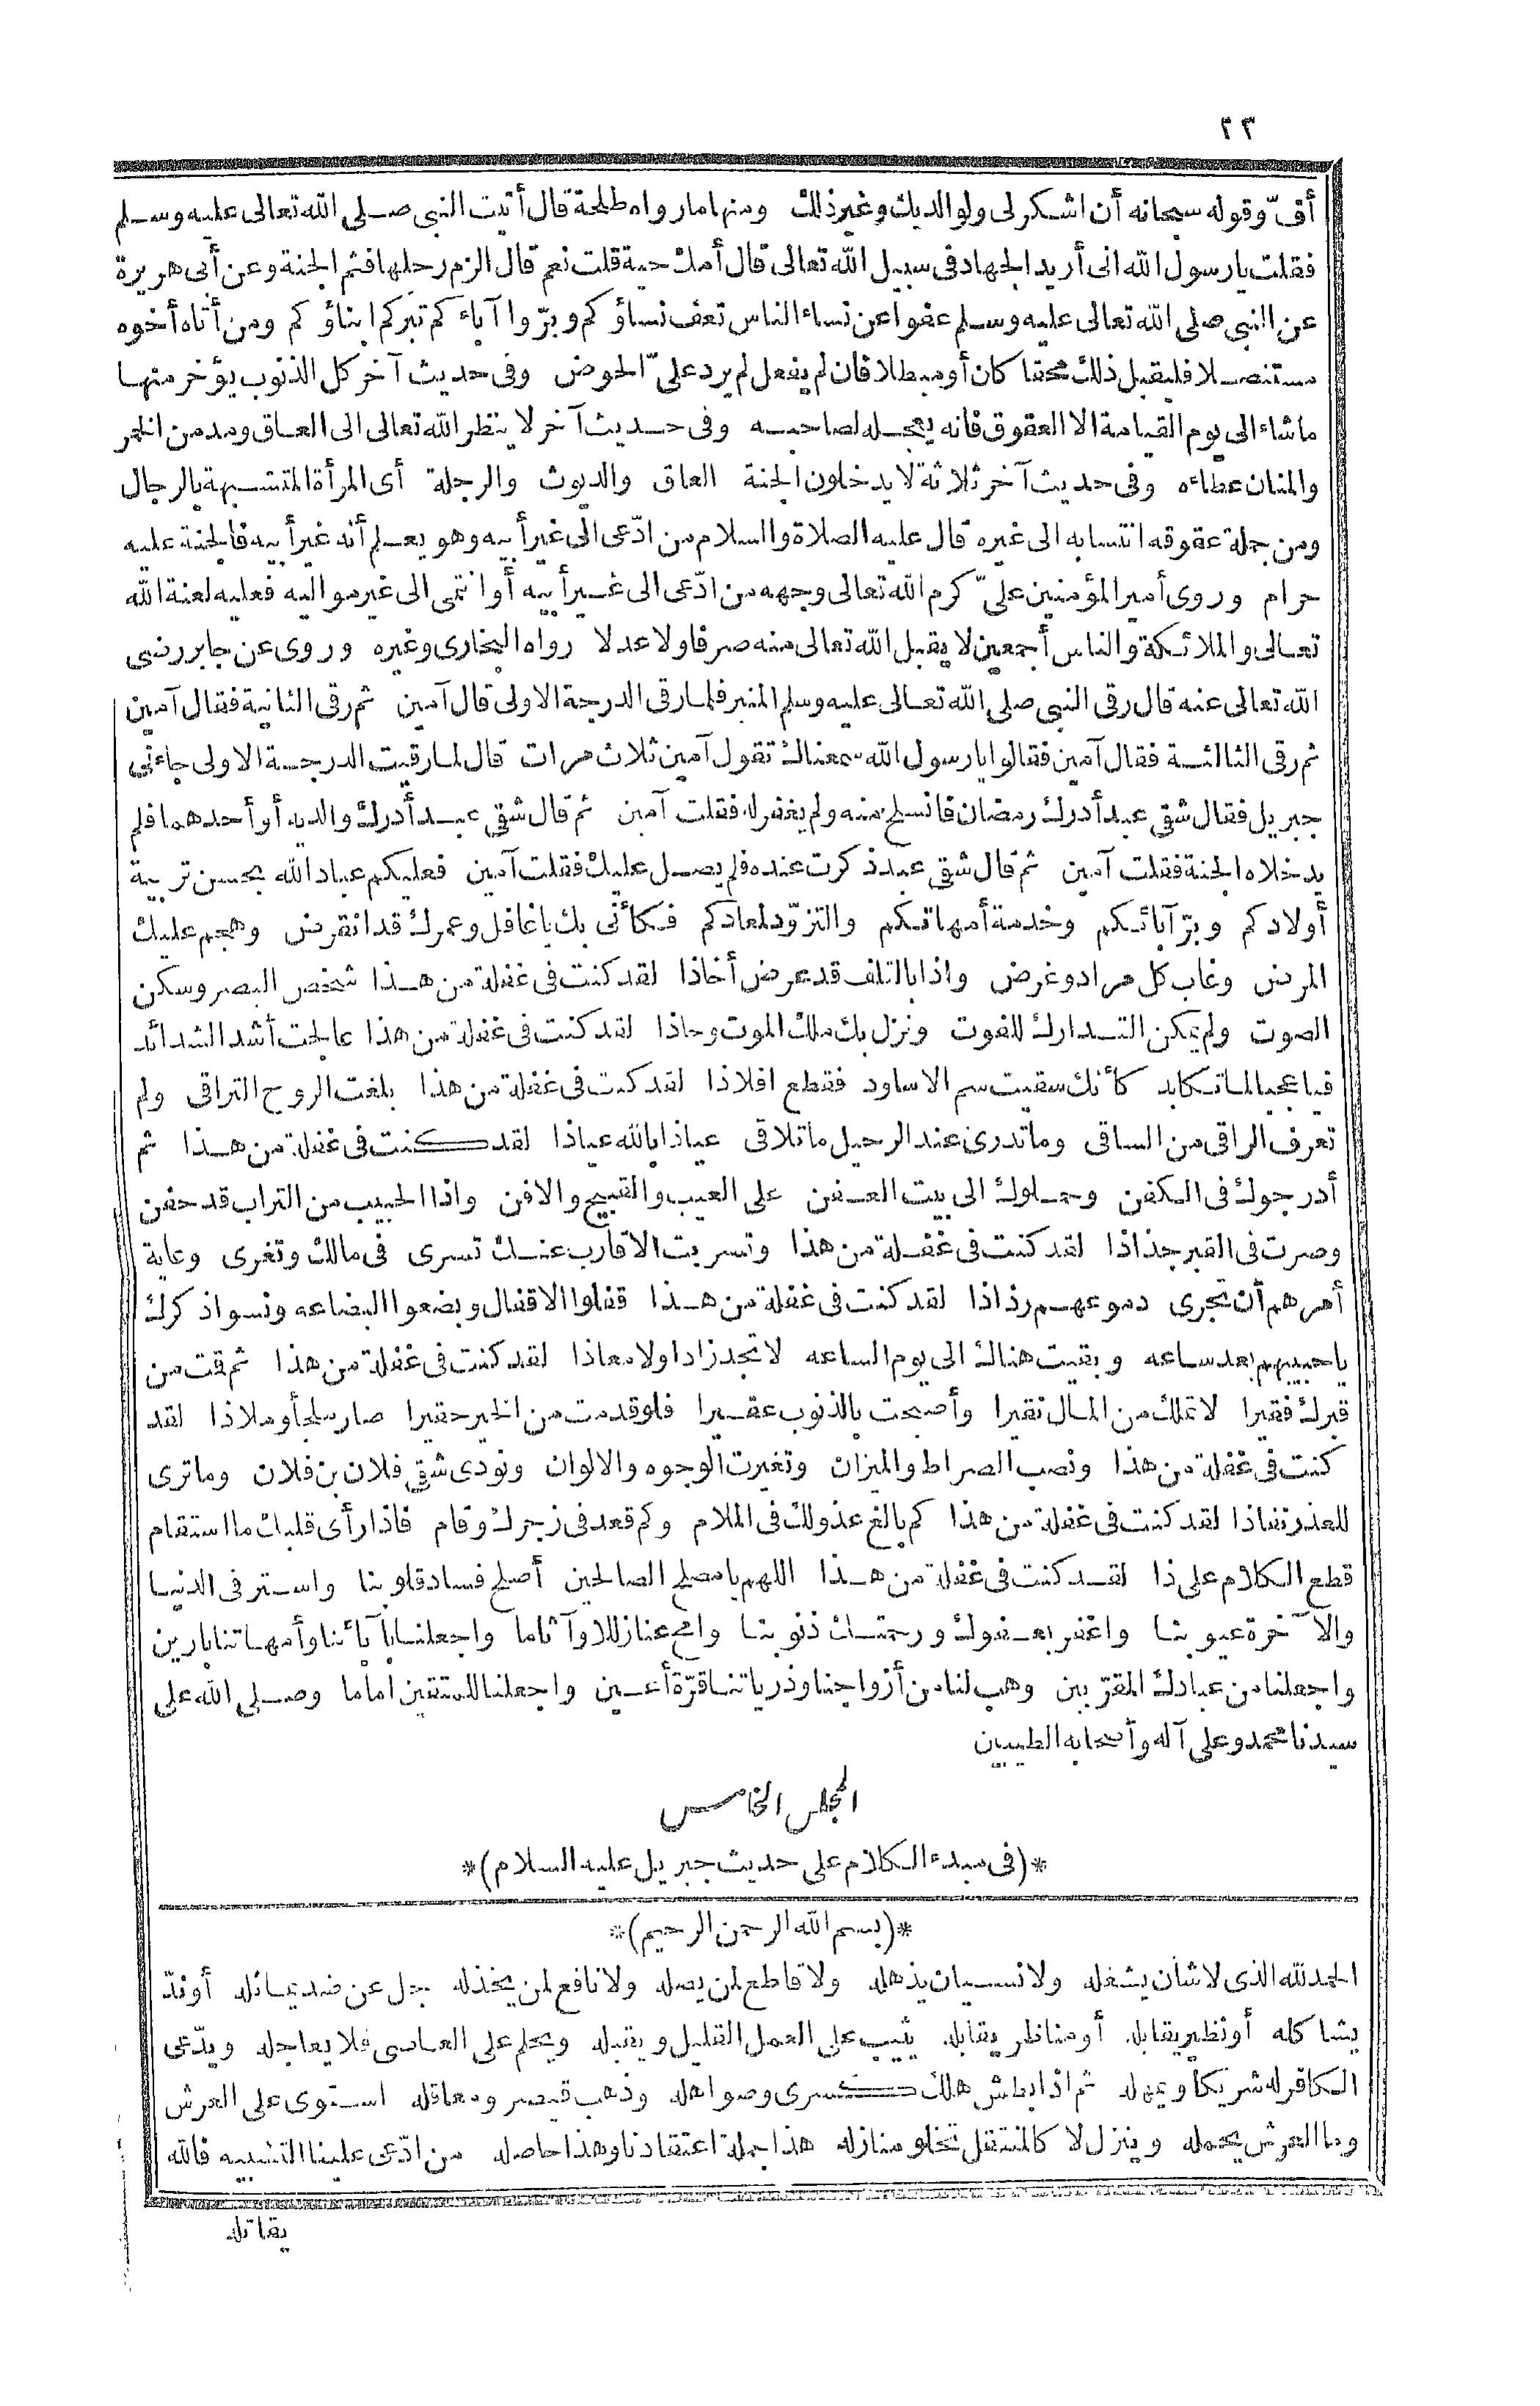 ٢٣
أفّ وقوله سبحانه أن اشكر لى ولوالديك وغير ذلك ومنها ما رواه طلحة قال أتيت النبى صلى الله تعالى عليه وسلم
فقلت يا رسول الله انى أريد الجهاد فى سبيل الله تعالى قال أمك حية قلت نعم قال الزم رحلها فثم الجنة وعن أبى هريرة
عن النبى صلى الله تعالى عليه وسلم عفوا عن نساء الناس تعف نساؤكم وبرّوا آباءكم تبركم ابناؤكم ومن أتاه أخوه
مستنصلا فليقبل ذلك محقا كان أو مبطلا فان لم يفعل لم يرد علىّ الحوض وفى حديث آخر كل الذنوب يؤخر منها
ما شاء الى يوم القيامة الا العقوق فانه يعجله لصاحبه وفى حديث آخر لا ينظر الله تعالى الى العاق ومدمن الخمر
والمنان عطاءه وفى حديث آخر ثلاثة لا يدخلون الجنة العاق والديوث والرجلة أى المرأة المتشبهة بالرجال
ومن جملة عقوقه انتسابه الى غيره قال عليه الصلاة والسلام من ادّعى الى غير أبيه وهو يعلم أنه غير أبيه فالجنة عليه
حرام وروى أمير المؤمنين علىّ كرم الله تعالى وجهه من ادّعى الى غير أبيه أو انتمى الى غير مواليه فعليه لعنة الله
تعالى والملائكة والناس أجمعين لا يقبل الله تعالى منه صرفا ولا عدلا رواه البخارى وغيره وروى عن جابر رضى
الله تعالى عنه قال رقى النبى صلى الله تعالى عليه وسلم المنبر فلما رقى الدرجة الاولى قال آمين ثم رقى الثانية فقال آمين
ثم رقى الثالثة فقال آمين فقالوا يا رسول الله سمعناك تقول آمين ثلاث مرات قال لما رقيت الدرجة الاولى جاءنى
جبريل فقال شقى عبد أدرك رمضان فانسلخ منه ولم يغفر له فقلت آمين ثم قال شقى عبد أدرك والديه أو أحدهما فلم
يدخلاه الجنة فقلت آمين ثم قال شقى عبد ذكرت عنده فلم يصل عليك فقلت آمين فعليكم عباد الله بحسن تربية
أولادكم وبرّ آبائكم وخدمة أمهاتكم والتزوّد لمعادكم فكأنى بك يا غافل وعمرك قد انقرض وهجم عليك
المرض وغاب كل مراد وغرض واذا بالتلف قد عرض أخاذا لقد كنت فى غفلة من هذا شخص البصر وسكن
الصوت ولم يمكن التدارك للفوت ونزل بك ملك الموت وحاذا لقد كنت فى غفلة من هذا عالجت أشد الشدائد
فيا عجبا لما تكابد كأنك سقيت سم الاساود فقطع افلاذا لقد كنت فى غفلة من هذا بلغت الروح التراقى ولم
تعرف الراقى من الساقى وما تدرى عند الرحيل ما تلاقى عياذا بالله عياذا لقد كنت فى غفلة من هذا ثم
أدرجوك فى الكفن وحملوك الى بيت العفن على العيب والقبيح والافن واذا الحبيب من التراب قد حفن
وصرت فى القبر جذاذا لقد كنت فى غفلة من هذا وتسربت الاقارب عنك تسرى فى مالك وتفرى وغاية
أمرهم أن تجرى دموعهم رذاذا لقد كنت فى غفلة من هذا قفلوا الاقفال وبضعوا البضاعه ونسوا ذكرك
يا حبيبهم بعد ساعه وبقيت هناك الى يوم الساعه لا تجد زادا ولا معاذا لقد كنت فى غفلة من هذا ثم قمت من
قبرك فقيرا لا تملك من المال نقيرا وأصبحت بالذنوب عقيرا فلو قدمت من الخير حقيرا صار ملجأ وملاذا لقد
كنت فى غفلة من هذا ونصب الصراط والميزان وتغيرت الوجوه والالوان ونودى شقى فلان بن فلان وما ترى
للعذر نفاذا لقد كنت فى غفلة من هذا كم بالغ عذولك فى الملام وكم قعد فى زجرك وقام فاذا رأى قلبك ما استقام
قطع الكلام على ذا لقد كنت فى غفلة من هذا اللهم يا مصلح الصالحين أصلح فساد قلوبنا واستر فى الدنيا
والآخرة عيوبنا واغفر بعفوك ورحمتك ذنوبنا وامح عنا زللا وآثاما واجعلنا بآبائنا وأمهاتنا بارين
واجعلنا من عبادك المقرّبين وهب لنا من أزواجنا وذرياتنا قرّة أعين واجعلنا للمتقين اماما وصلى الله على
سيدنا محمد وعلى آله وأصحابه الطيبين
المجلس الخامس
*(فى مبدء الكلام على حديث جبريل عليه السلام)*
*(بسم الله الرحمن الرحيم)*
الحمد لله الذى لا شان يشغله ولا نسيان يذهله ولا قاطع لمن يصله ولا نافع لمن يخذله جل عن ضد يماثله أو ندّ
يشاكله أو نظير يقابله أو مناظر يقابله يثيب على العمل القليل ويقبله ويحلم على العاصى فلا يعاجله ويدّعى
الكافر له شريكا ويمهله ثم اذا بطش هلك كسرى وصواهله وذهب قيصر ومعاقله استوى على العرش
وما العرش يحمله وينزل لا كالمنتقل تخلو منازله هذا جملة اعتقادنا وهذا حاصله من ادّعى علينا التشبيه فالله
يقاتله